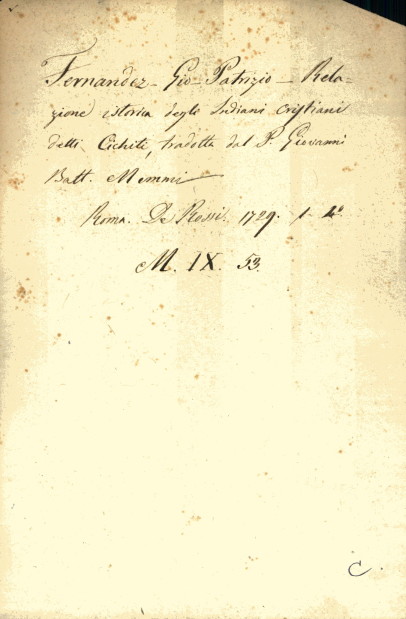 Fernandez - Gio Patrizio - Rela-
zione istorica degl' Indiani cristiani
detti Cichiti, tradotta dal P. Giovanni
Batt. Memmi
Roma. De Rossi. 1729. 1. 4°
M. IX. 53.
C.